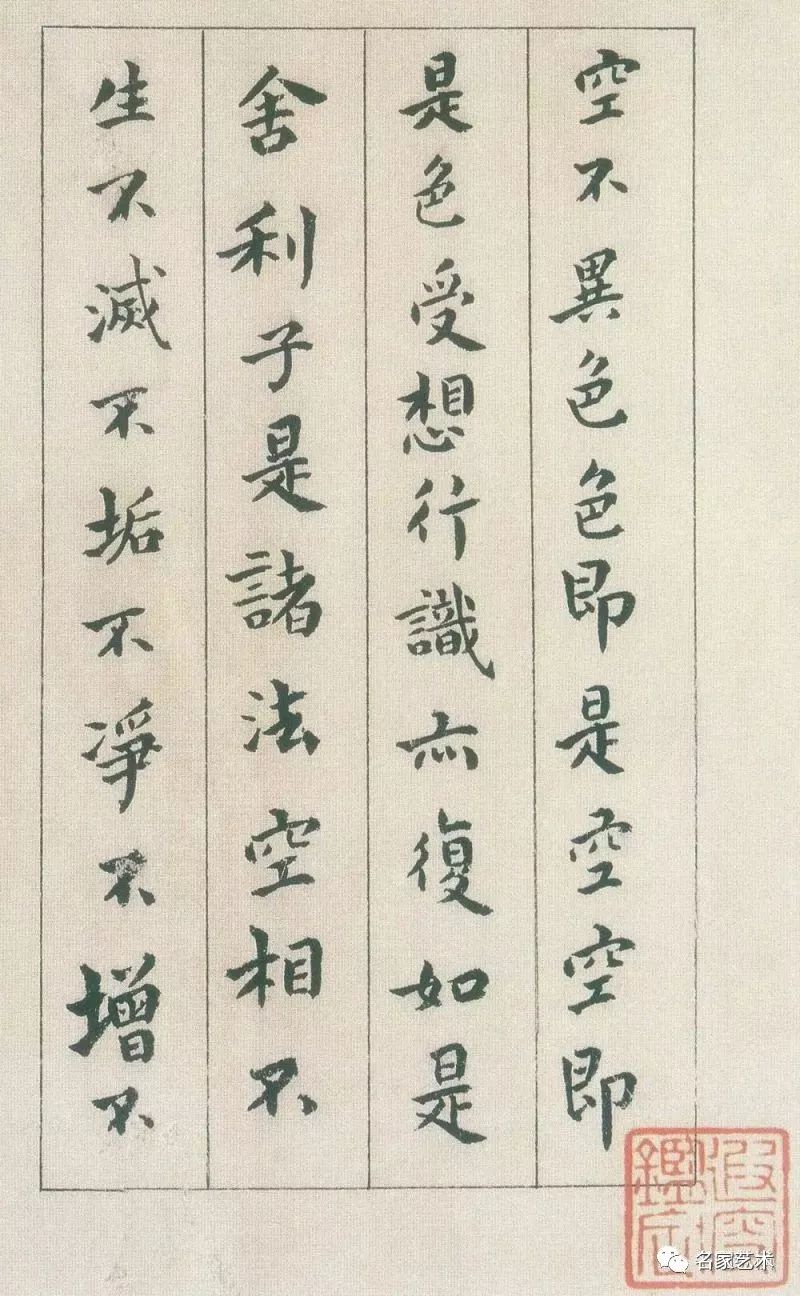 空不異色色即是空空即
是色受想行識亦復如是
舍利子是諸法空相不
生不滅不垢不淨不增不
名家艺术